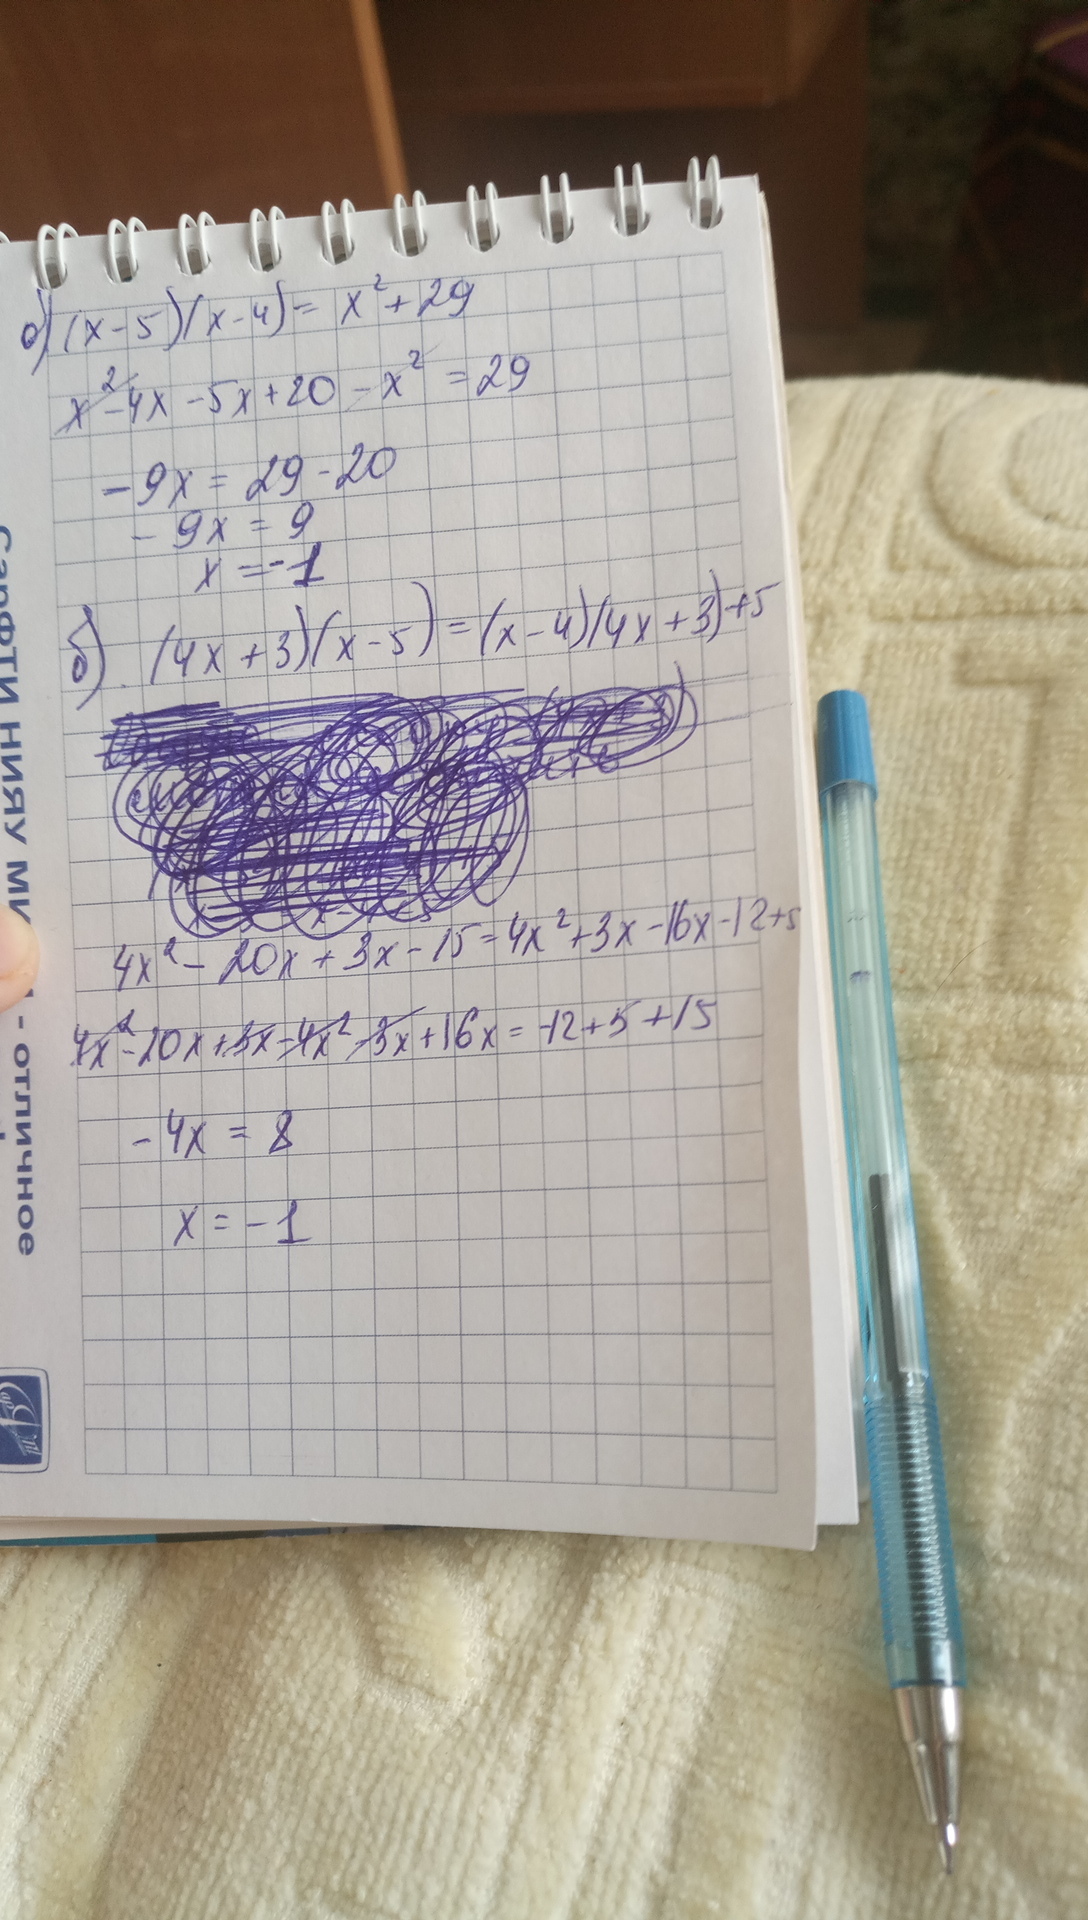 а) (x-5)(x-4)= x²+29
x²-4x-5x+20-x²=29
-9x=29-20
-9x=9
x=-1
б). (4x+3)(x-5)=(x-4)(4x+3)+5
4x²-20x+3x-15=4x²+3x-16x-12+5
4x²-20x+3x-4x²-3x+16x=-12+5+15
-4x=8
x=-1
- отличное